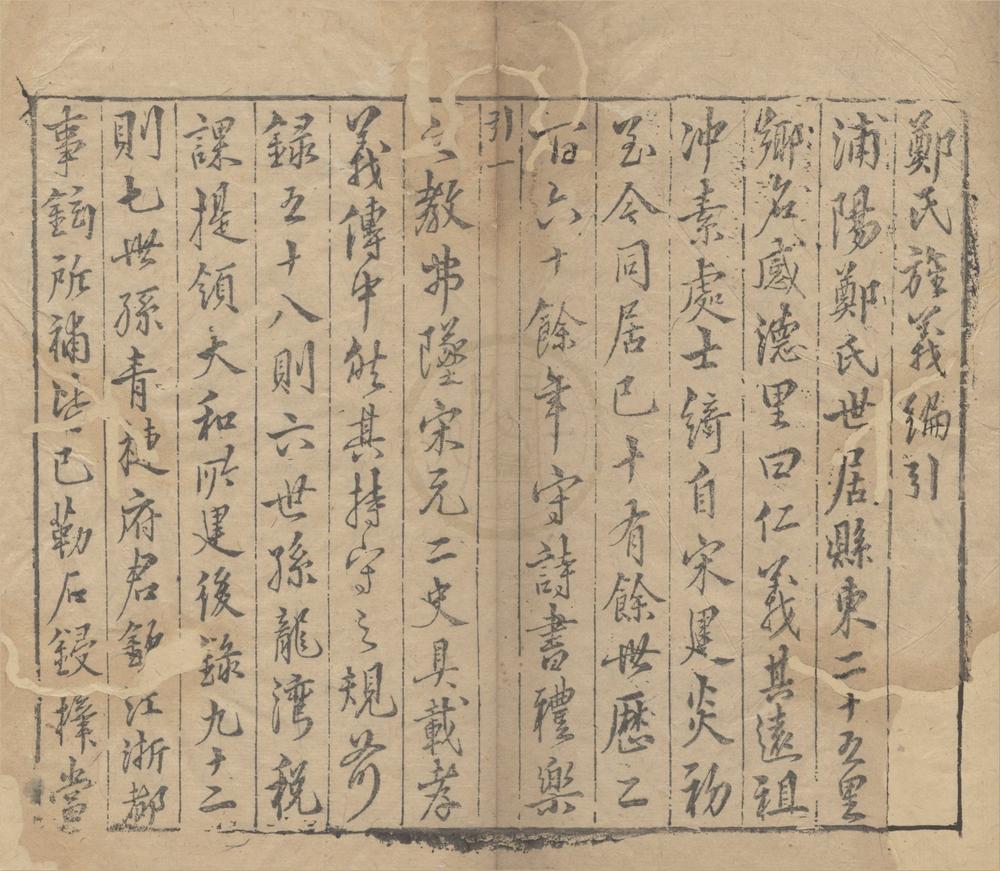 鄭氏旌義編引
浦陽鄭氏世居縣東二十五里
鄉名感德里曰仁義其遠祖
冲素處士綺自宋建炎初
至今同居已十有餘世歷二
百六十餘年守詩書禮樂
引一
之教弗墜宋元二史具載孝
義傳中然其持守之規前
録五十八則六世孫龍灣稅
課提領大和所建後錄九十二
則七世孫青槤府君鉉江浙都
事鉉所補注已勒石鋟梓當